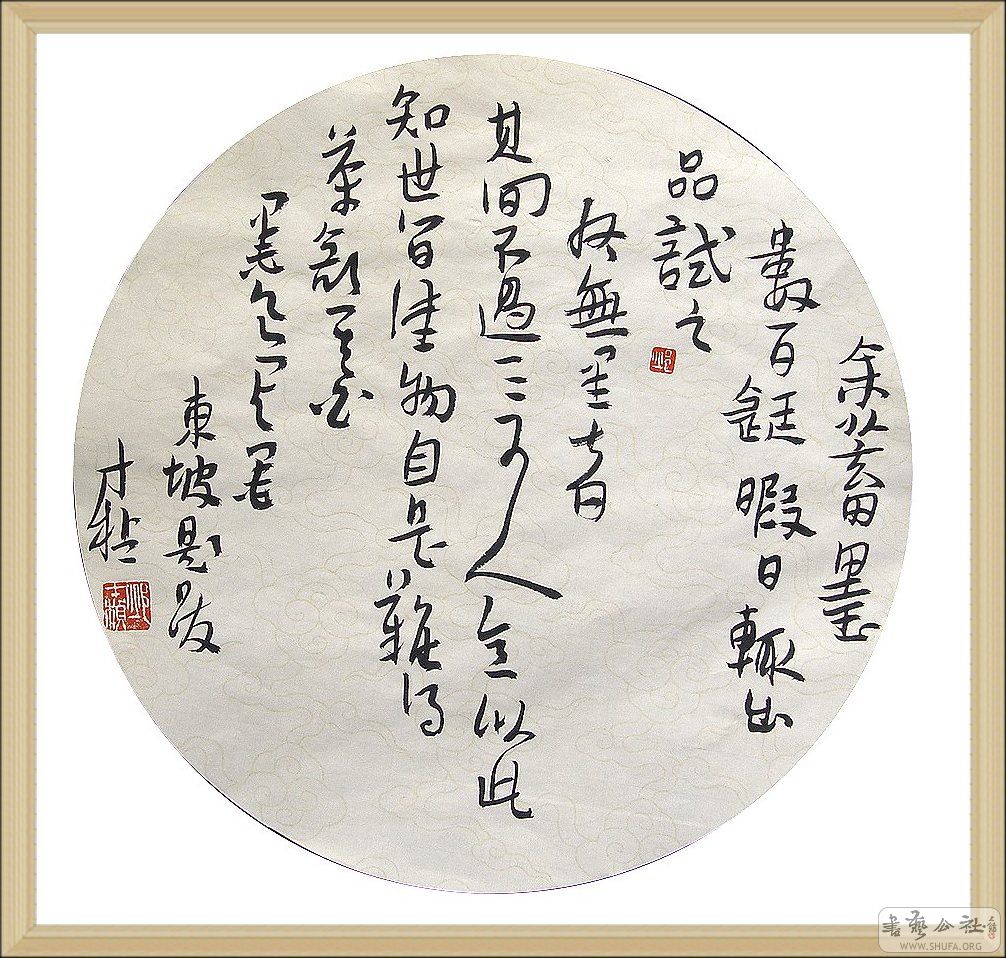 余蓄墨
數百鋌暇日輒出
品試之
終無黑者
其間不過一二可人意以此
知世間佳物自是難得
茶欲其白
墨欲其黑
東坡題跋
書藝公社
WWW.SHUFA.ORG